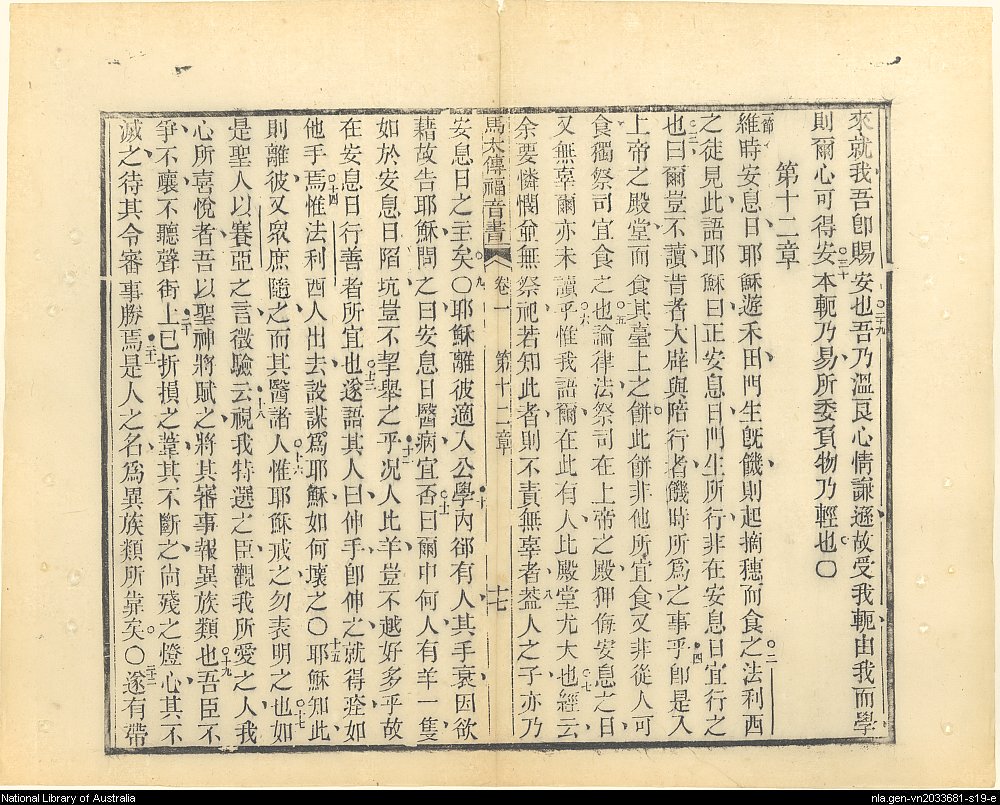 來就我吾卽賜安也吾乃溫良心情謙遜故受我軛由我而學
則爾心可得安本軛乃易所委負物乃輕也〇
第十二章
維時安息日耶穌遊禾田門生旣饑則起摘穗而食之法利西
之徒見此語耶穌曰正安息日門生所行非在安息日宜行之
也曰爾豈不讀昔者大辟與陪行者饑時所爲之事乎卽是入
上帝之殿堂而食其臺上之餅此餅非他所宜食又非從人可
食獨祭司宜食之也論律法祭司在上帝之殿狎侮安息之日
又無辜爾亦未讀乎惟我語爾在此有人比殿堂尤大也經云
余要憐憫並無祭祀若知此者則不責無辜者葢人之子亦乃
馬太傳福音書 卷一 第十二章 十七
安息日之主矣〇耶穌離彼適入公學內郤有人其手衰因欲
藉故告耶穌問之曰安息日醫病宜否曰爾中何人有羊一隻
如於安息日陷坑豈不挈舉之乎况人比羊豈不越好多乎故
在安息日行善者所宜也遂語其人曰伸手卽伸之就得痊如
他手焉惟法利西人出去設謀爲耶穌如何壞之〇耶穌知此
則離彼又衆庶隨之而其醫諸人惟耶穌戒之勿表明之也如
是聖人以賽亞之言徵驗云視我特選之臣觀我所愛之人我
心所喜悅者吾以聖神將賦之將其審事報異族類也吾臣不
爭不嚷不聽聲街上已折損之葦其不斷之尙殘之燈心其不
滅之待其令審事勝焉是人之名爲異族類所靠矣〇遂有帶
National Library of Australia
nla.gen-vn2033681-s19-e